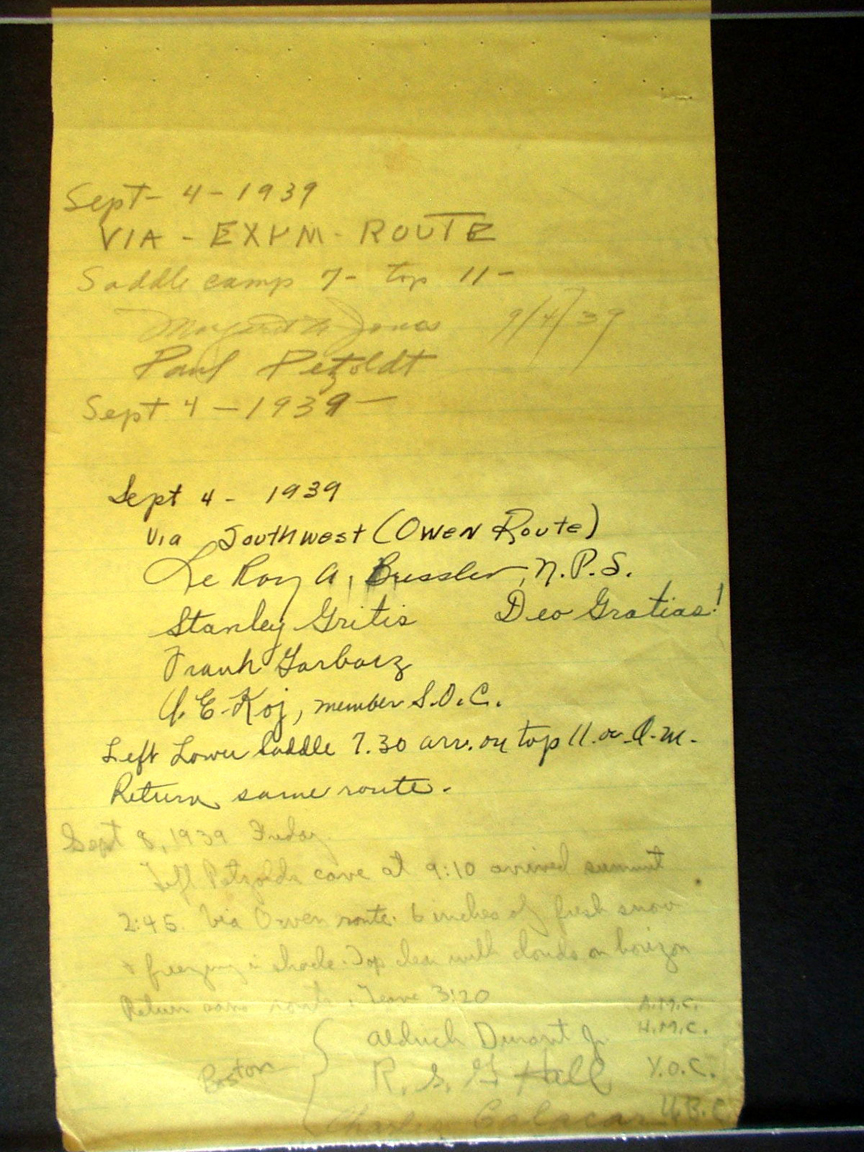 Sept - 4 - 1939
VIA - EXUM - ROUTE
Saddle camp 7 - top 11 -
Margaret Jonas 9/4/39
Paul Petzoldt
Sept 4 - 1939 -
Sept 4 - 1939
Via Southwest (Owen Route)
Le Roy A. Bussler, N.P.S.
Stanley Gritis Deo Gratias!
Frank Garbacz
E. Koj, member S.O.C.
Left Lower Saddle 7.30 arr. on top 11. A.M.
Return same route.
Sept 8, 1939 Friday
Left Petzolds cave at 9:10 arrived summit
2:45. Via Owen route. 6 inches of fresh snow
& freezing in shade. Top clear with clouds on horizon
Return same route. Leave 3:20
A.M.C.
Aldrich Durant Jr. H.M.C.
Boston R. S. G Hall Y.O.C.
Charles